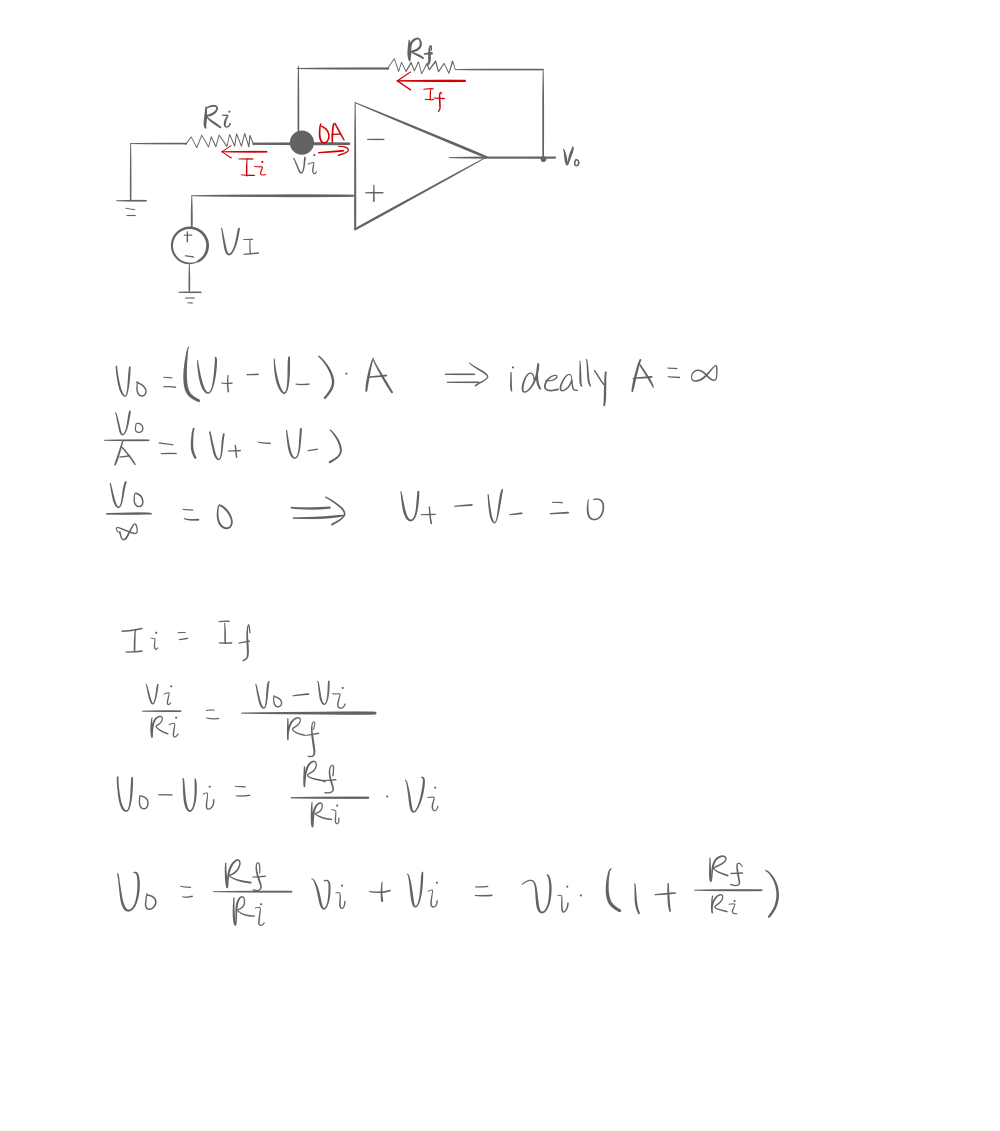 Rf
If
Ri
0A
Ii
Vi
−
+
Vo
+
−
VI
Vo = (V+ − V−) · A ⇒ ideally A = ∞
Vo/A = (V+ − V−)
Vo/∞ = 0 ⇒ V+ − V− = 0
Ii = If
Vi/Ri = (Vo − Vi)/Rf
Vo − Vi = Rf/Ri · Vi
Vo = Rf/Ri Vi + Vi = Vi · (1 + Rf/Ri)